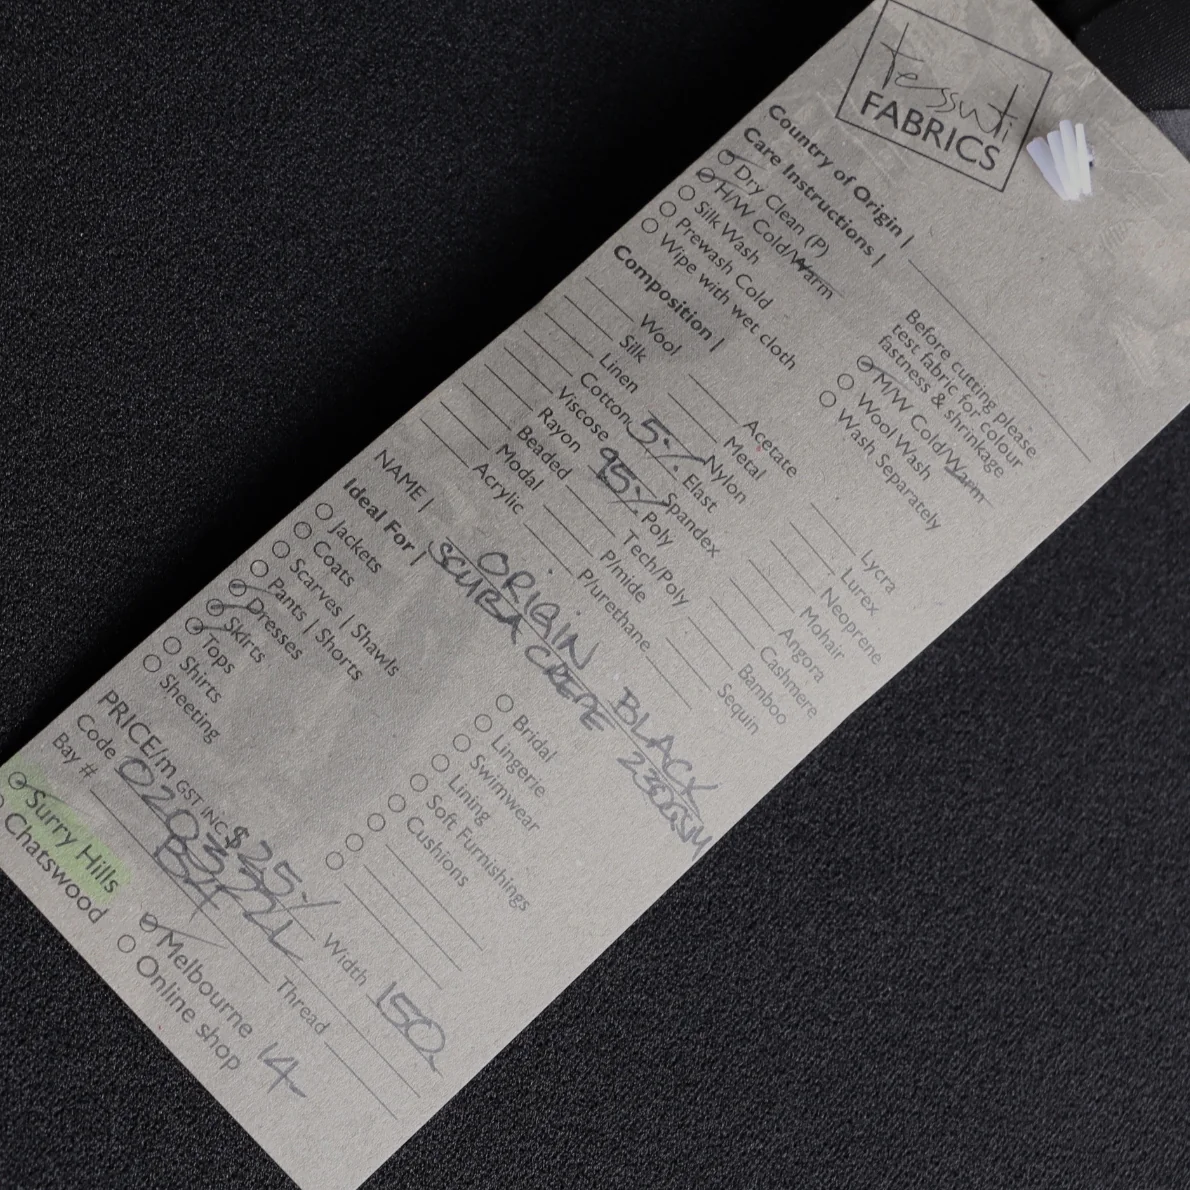 tessuti
FABRICS
Country of Origin |
Care Instructions |
Before cutting please
test fabric for colour
fastness & shrinkage
Dry Clean (P)
H/W Cold/Warm
Silk Wash
Prewash Cold
Wipe with wet cloth
M/W Cold/Warm
Wool Wash
Wash Separately
Composition |
Wool
Silk
Linen
Cotton
Viscose
Rayon
Beaded
Modal
Acrylic
Acetate
Metal
Nylon
5% Elast
Spandex
95% Poly
Tech/Poly
P/mide
P/urethane
Lycra
Lurex
Neoprene
Mohair
Angora
Cashmere
Bamboo
Sequin
NAME | ORIGIN BLACK
SCUBA CREPE 230GSM
Ideal For |
Jackets
Coats
Scarves | Shawls
Pants | Shorts
Dresses
Skirts
Tops
Shirts
Sheeting
Bridal
Lingerie
Swimwear
Lining
Soft Furnishings
Cushions
PRICE/m GST INC $25
Width 150
Code
Bay # B4
Thread
Surry Hills
Chatswood
Melbourne 14
Online shop